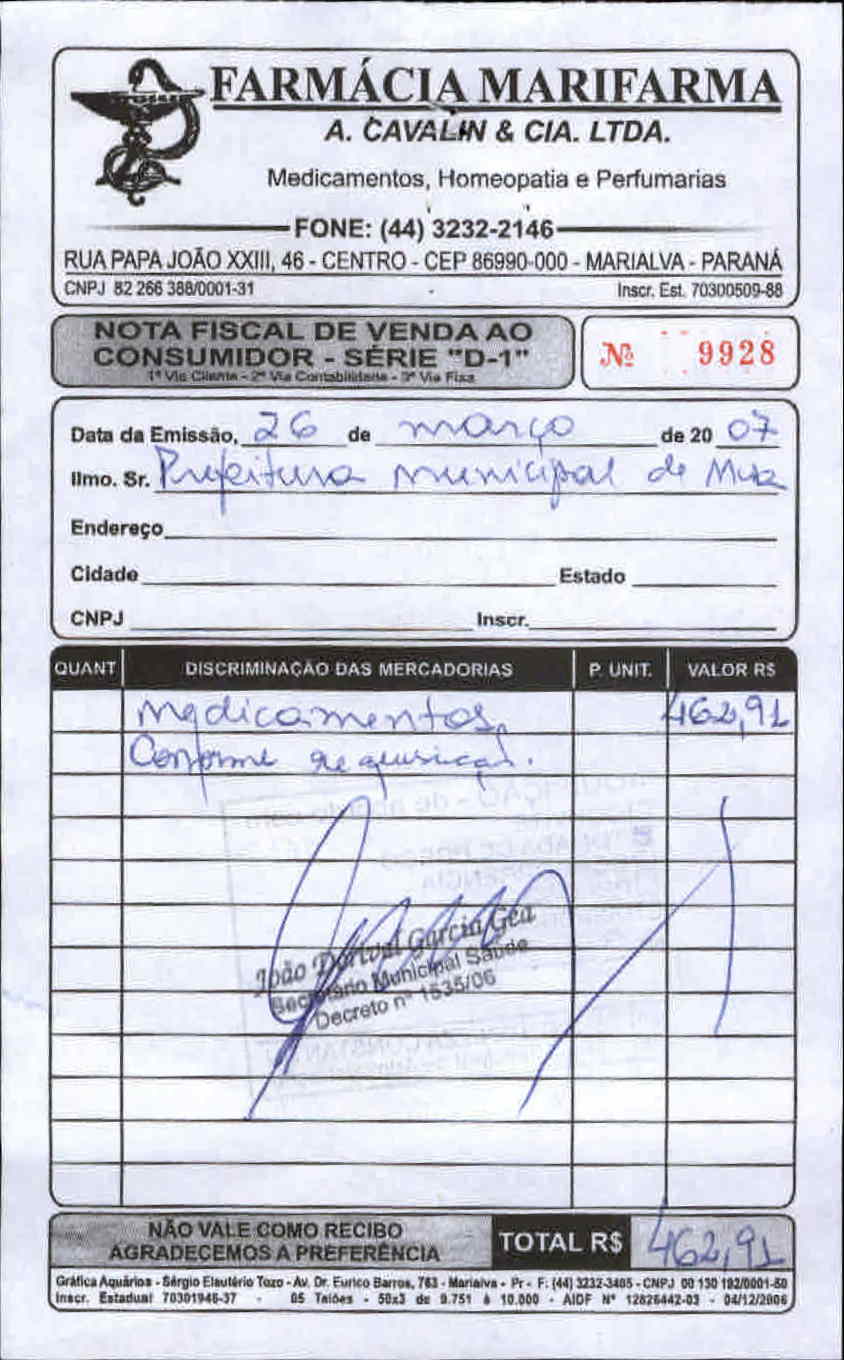 FARMÁCIA MARIFARMA
A. CAVALIN & CIA. LTDA.
Medicamentos, Homeopatia e Perfumarias
FONE: (44) 3232-2146
RUA PAPA JOÃO XXIII, 46 - CENTRO - CEP 86990-000 - MARIALVA - PARANÁ
CNPJ 82 266 388/0001-31 Inscr. Est. 70300509-88
NOTA FISCAL DE VENDA AO
CONSUMIDOR - SÉRIE "D-1"
1ª Via Cliente - 2ª Via Contabilidade - 3ª Via Fixa
Nº 9928
Data da Emissão, 26 de março de 2007
Ilmo. Sr. Prefeitura municipal de
Endereço
Cidade Estado
CNPJ Inscr.
QUANT DISCRIMINAÇÃO DAS MERCADORIAS P. UNIT. VALOR R$
Medicamentos, 462,91
Conforme requisição.
João Dorival Garcia Gea
Secretário Municipal Saúde
Decreto nº 1535/06
NÃO VALE COMO RECIBO
AGRADECEMOS A PREFERÊNCIA
TOTAL R$ 462,91
Gráfica Aquários - Sérgio Eleutério Tozo - Av. Dr. Eurico Barros, 763 - Marialva - Pr - F: (44) 3232-3405 - CNPJ 00 130 192/0001-50
Inscr. Estadual 70301946-37 - 05 Talões - 50x3 de 9.751 à 10.000 - AIDF Nº 12826442-03 - 04/12/2006